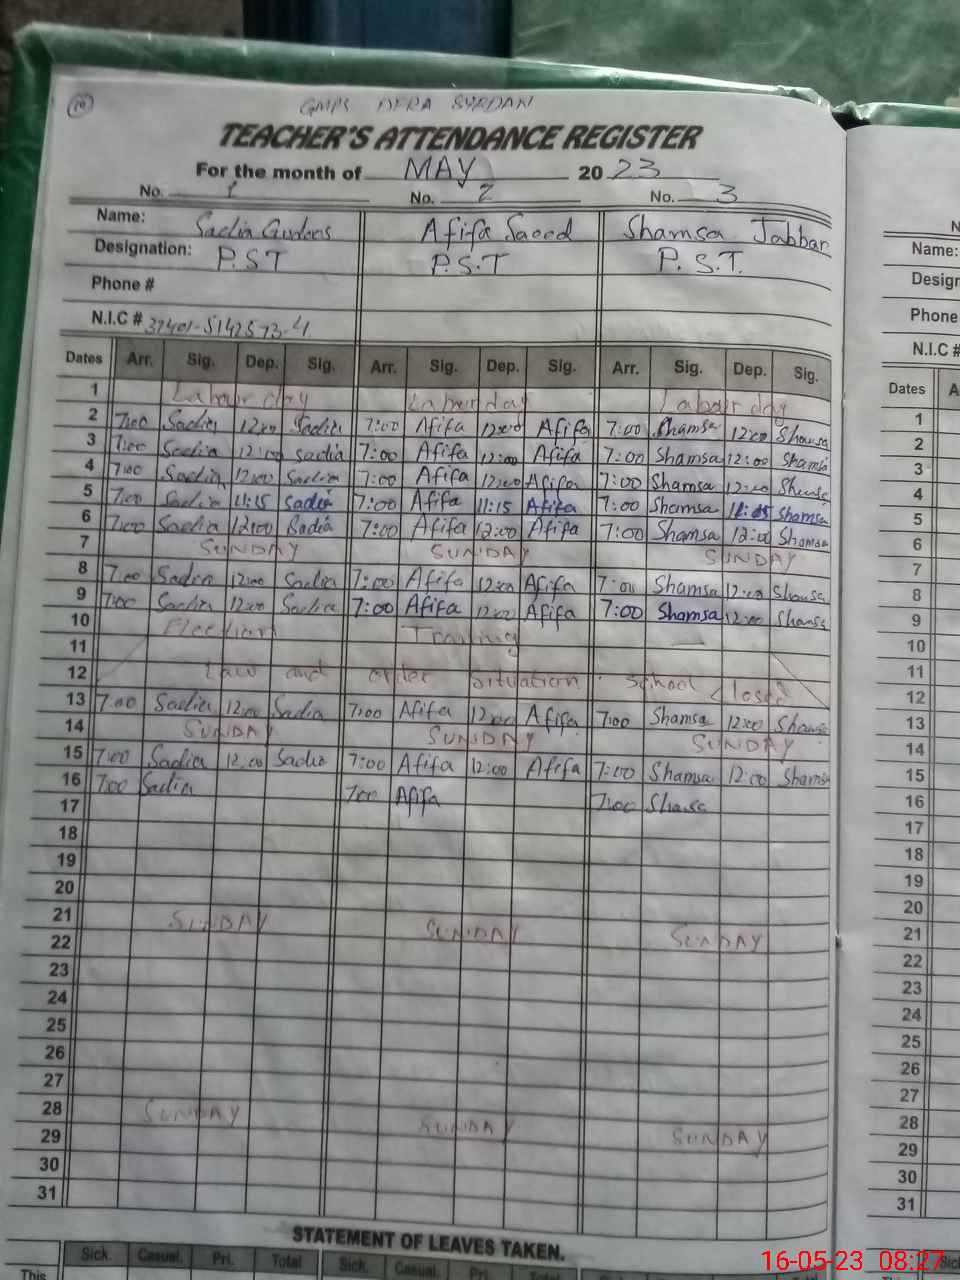 GMPS DERA SYEDAN
TEACHER'S ATTENDANCE REGISTER
For the month of MAY 2023
No. 1 No. 2 No. 3
Name: Sadia Afifa Saeed Shamsa Jabbar
Designation: P.ST P.S.T P.S.T.
Phone #
N.I.C # 37401-5142573-4
Dates Arr. Sig. Dep. Sig. Arr. Sig. Dep. Sig. Arr. Sig. Dep. Sig.
1 Labour day Labour day Labour day
2 7:00 Sadia 12:00 Sadia 7:00 Afifa 12:00 Afifa 7:00 Shamsa 12:00 Shamsa
3 7:00 Sadia 12:00 Sadia 7:00 Afifa 12:00 Afifa 7:00 Shamsa 12:00 Shamsa
4 7:00 Sadia 12:00 Sadia 7:00 Afifa 12:00 Afifa 7:00 Shamsa 12:00 Shamsa
5 7:00 Sadia 11:15 Sadia 7:00 Afifa 11:15 Afifa 7:00 Shamsa 11:15 Shamsa
6 7:00 Sadia 12:00 Sadia 7:00 Afifa 12:00 Afifa 7:00 Shamsa 12:00 Shamsa
7 SUNDAY SUNDAY SUNDAY
8 7:00 Sadia 12:00 Sadia 7:00 Afifa 12:00 Afifa 7:00 Shamsa 12:00 Shamsa
9 7:00 Sadia 12:00 Sadia 7:00 Afifa 12:00 Afifa 7:00 Shamsa 12:00 Shamsa
10 Election Training
11
12 Law and order situation school closed
13 7:00 Sadia 12:00 Sadia 7:00 Afifa 12:00 Afifa 7:00 Shamsa 12:00 Shamsa
14 SUNDAY SUNDAY SUNDAY
15 7:00 Sadia 12:00 Sadia 7:00 Afifa 12:00 Afifa 7:00 Shamsa 12:00 Shamsa
16 7:00 Sadia 7:00 Afifa 7:00 Shamsa
17
18
19
20
21 SUNDAY SUNDAY SUNDAY
22
23
24
25
26
27
28 SUNDAY SUNDAY SUNDAY
29
30
31
STATEMENT OF LEAVES TAKEN.
Sick. Casual. Pri. Total Sick. Casual. Pri. Total
This
Name:
Phone
N.I.C #
Dates
1
2
3
4
5
6
7
8
9
10
11
12
13
14
15
16
17
18
19
20
21
22
23
24
25
26
27
28
29
30
31
16-05-23 08:27